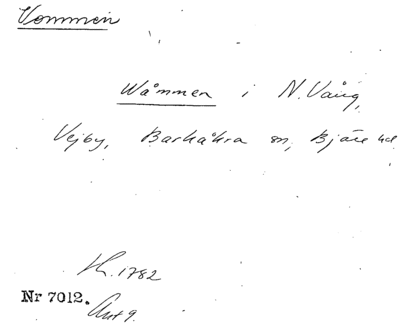 Vommen
Wåmmen i N. Vång,
Vejby, Barkåkra sn, Bjäre hd
H. 1782
Nr 7012.
Akt 9.